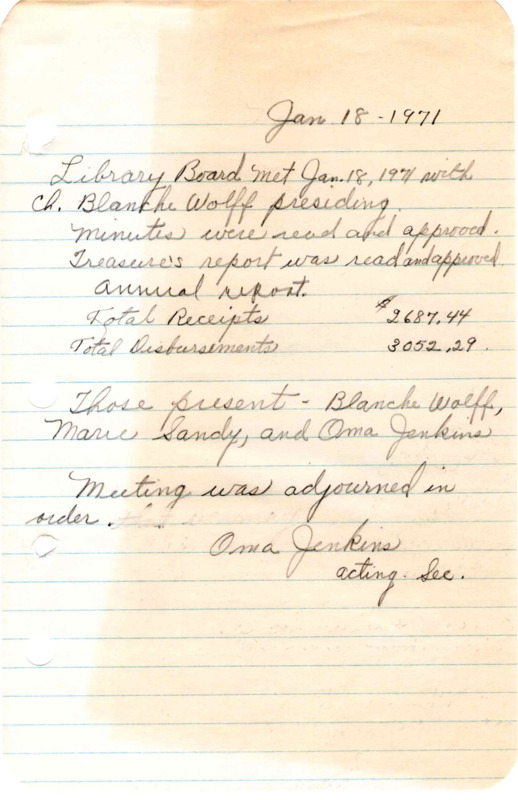 Jan 18 - 1971
Library Board met Jan. 18, 1971 with
Ch. Blanche Wolff presiding.
Minutes were read and approved.
Treasure's report was read and approved
Annual report.
Total Receipts $2687.44
Total Disbursements 3052.29.
Those present - Blanche Wolff,
Marie Sandy, and Oma Jenkins
Meeting was adjourned in
order.
Oma Jenkins
acting Sec.